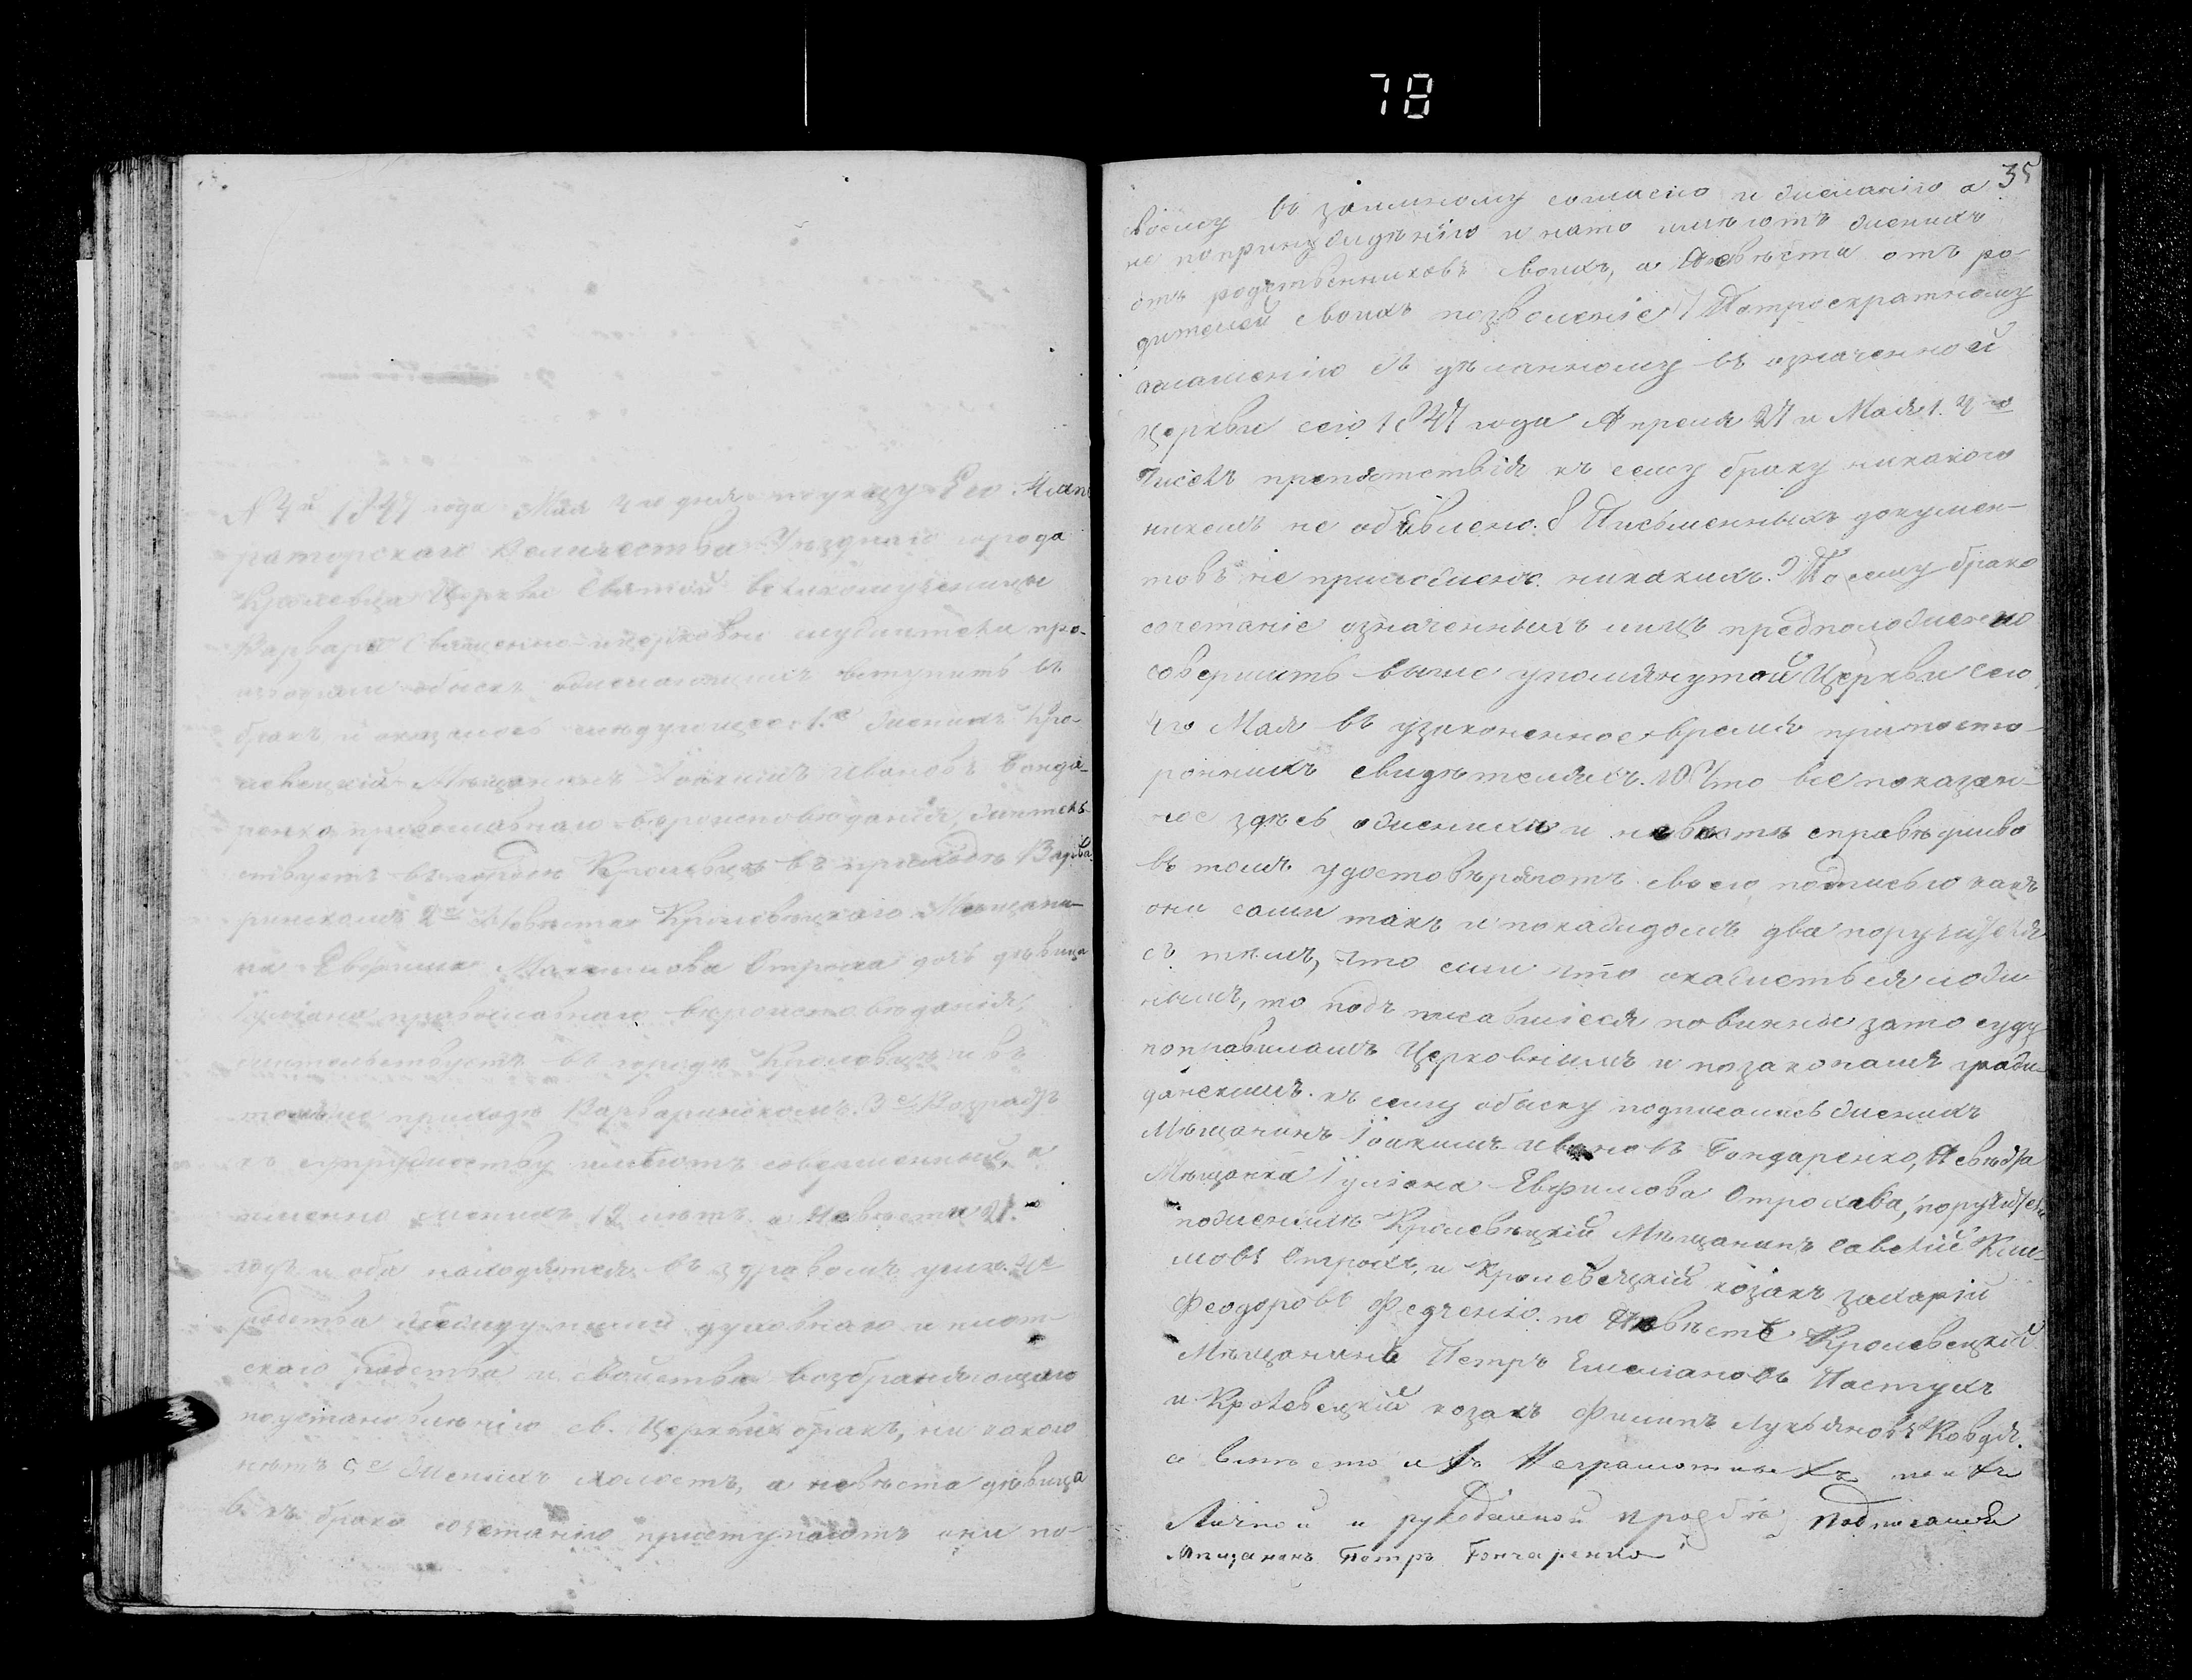 78
№ 4й 1847 года Мая 4го дня по указу Его Импе
раторскаго Величества Уѣзднаго города
Кролевца Церкви Святой великомученицы
Варвары Священно-церковно служители про-
изводили обыскъ о желающихъ вступить въ
бракъ и оказалось слѣдующее: 1.е Женихъ Кро-
левецкій Мѣщанинъ Іоакимъ Ивановъ Бонда-
ренко православнаго вѣроисповѣданія, жительс-
твуетъ въ городѣ Кролевцѣ въ приходѣ Варва
ринскомъ 2е Невѣста Кролевецкаго Мѣщани-
на Евфима Отроха дочь дѣвица
Іуліана православнаго вѣроисповѣданія,
жительствуетъ въ городѣ Кролевцѣ и въ
томъже приходѣ Варваринскомъ. 3е Возрастъ
къ супружеству имѣютъ совершенный, а
именно женихъ лѣтъ а Невѣста 21.
годъ и оба находятся въ здравомъ умѣ. 4е
родства между ними духовнаго и плот-
скаго родства и свойства возбраняющаго
поустановленію св. Церкви бракъ, никакого
нѣтъ 5е Женихъ холостъ, а невѣста дѣвица
6. къ брако сочетанію приступаютъ они по-
35
своему взаимному согласію и желанію а
не попринужденію и нато имѣютъ женихъ
отъ родственниковъ своихъ, а Невѣста отъ ро-
дителей своихъ позволеніе 7 Потроекратному
оглашенію сдѣланному въ означенной
церкви сего 1847 года Апреля 27 и Мая 1. 4го
Чиселъ препятствія къ сему браку никакого
никемъ не объявлено. 8 Письменныхъ докумен-
товъ не приложено никакихъ. 9 По сему брако
сочетаніе означенныхъ лицъ предположено
совершить выше упомянутой Церкви сего
4го Мая въ узаконенное время припосто-
роннихъ свидѣтеляхъ. 10 Что все показан-
ное здѣсь оженихѣ и невѣстѣ справѣдливо
въ томъ удостовѣряютъ своею подписью какъ
они сами такъ и покаждомъ два поручителя
съ тѣмъ, что если что окажеться лож-
нымъ, то подъ писавшіеся повинны зато суду
поправиламъ Церковнымъ и позаконамъ граж-
данскимъ. къ сему обыску подписались женихъ
Мѣщанинъ Іоакимъ Ивановъ Бондаренко, Невѣста
Мѣщанка Іуліана Евфимова Отрохова, поручители
поженихѣ Кролевѣцкій Мѣщанинъ Савелій Кли-
мовъ Отрохъ, и Кролевецкій козакъ Захарій
Феодоровъ Федченко. по Невѣстѣ Кролевецкій
Мѣщанинъ Петръ Емеліановъ Пастухъ
и Кролевецкій козакъ Филипъ Лукьяновъ Ковдя.
а вмѣсто ихъ Неграмотныхъ по ихъ
Личной и рукоданной прозбѣ подписался
Мѣщанинъ Петръ Гончаренко